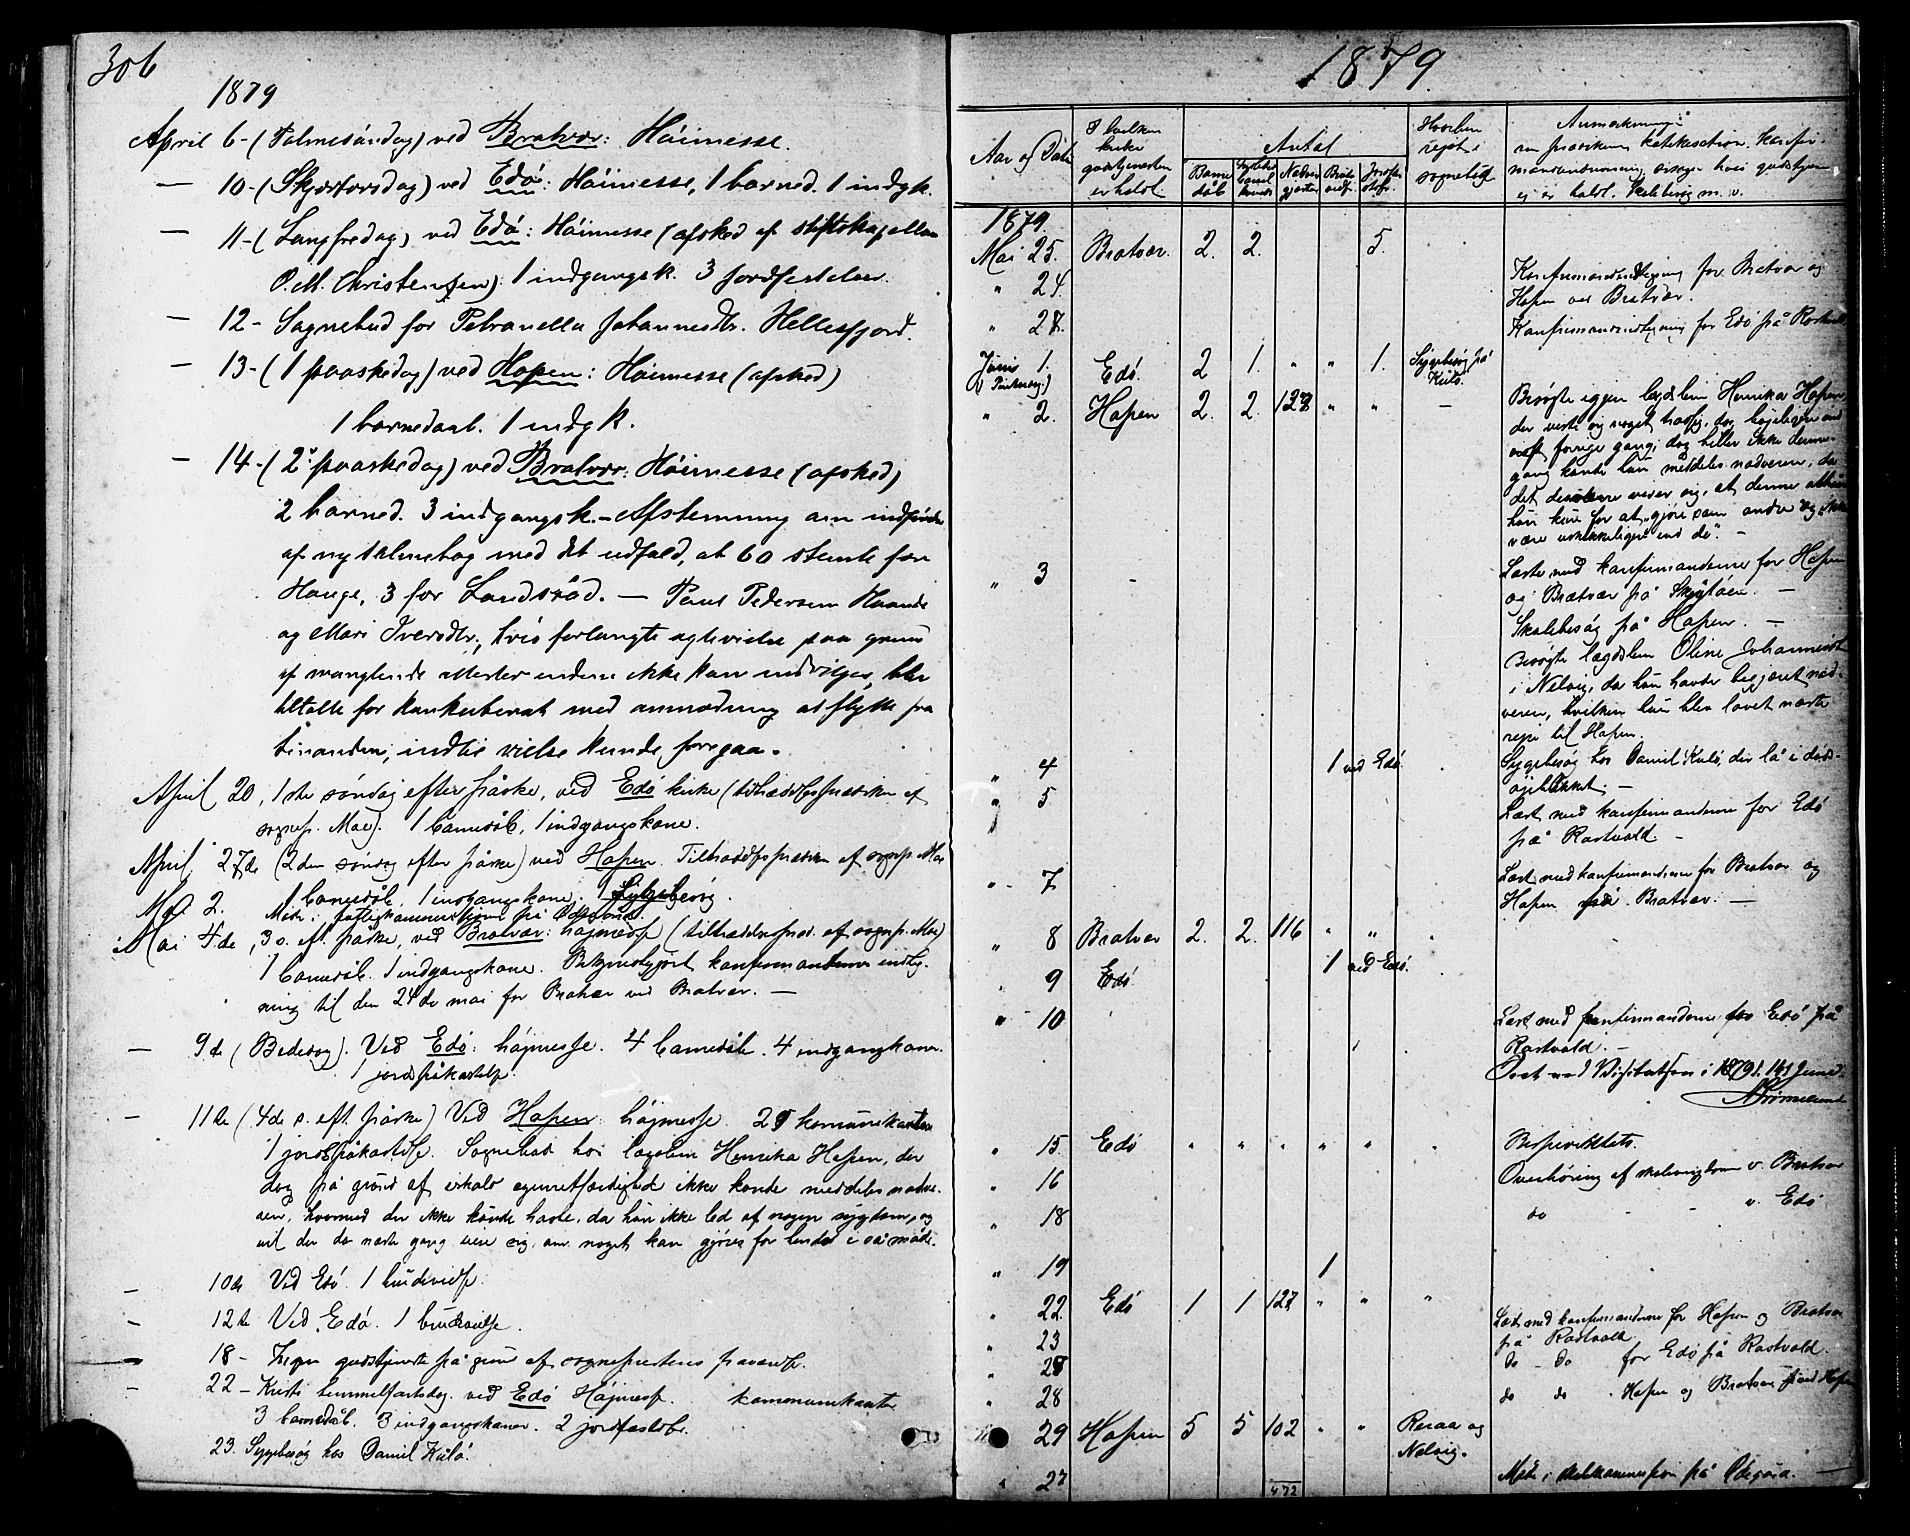 306
1879
April 6- (Palmesøndag) ved Bratvær: Høimesse.
— 10- (Skjærtorsdag) ved Edø: Høimesse, 1 barned. 1 indgk.
— 11- (Langfredag) ved Edø: Høimesse (afsked af stiftskapellan
P. M. Christensen). 1 indgangsk. 3 jordfæstelser.
— 12- Sognebud for Petronella Johannesdtr. Hellesfjord.
— 13- (1 paaskedag) ved Hopen: Høimesse (afsked)
1 barnedaab. 1 indgk.
— 14- (2. paaskedag) ved Bratvær: Høimesse (afsked)
2 barned. 3 indgangsk. - Afstemning om indførelse
af ny salmebog med det udfald, at 60 stemte for
Hauge, 3 for Landstad. — Paul Pedersen
og Mari Iversdtr., hvis forlangte ægtevielse paa grund
af manglende attester endnu ikke kan indvilges, blev
tiltalte for konkubinat med anmodning at flytte fra
hinanden, indtil vielse kunde foregaa.
April 20, 1ste søndag efter påske, ved Edø kirke (tiltrædelsesprædiken af
sognep. Moe). 1 barnedåb, 1 indgangskone.
April 27de (2den søndag efter påske) ved Hopen. Tiltrædelsesprædiken af sognep. Moe
1 barnedåb, 1 indgangskone. 1 sygebesøg.
Mai 2. Møde i fattigkommissionen på
Mai 4de, 3 s. eft. påske, ved Bratvær: højmesse (tiltrædelsespræd. af sognep. Moe)
1 barnedåb. 1 indgangskone. Bekjendtgjort konfirmanternes indteg-
ning til den 24de mai for Bratvær ved Bratvær. —
— 9de (Bededag). Ved Edø: højmesse. 4 barnedåb. 4 indgangskoner.
1 jordspåkastelse.
— 11te (4de s. eft. påske) Ved Hopen: højmesse. 25 komunikanter
1 jordspåkastelse. Sognebud hos lægdslem Henrika Hopen, der
dog på grund af egenretfærdighed ikke kunde meddeles nadve-
ren, hvormed der ikke kunde haste, da hun ikke led af nogen sygdom, og
vil der da næste gang vise sig, om noget kan gjøres for hende i så måde.
— 10de Ved Edø. 1 brudevielse.
— 12te Ved Edø. 1 brudevielse.
— 18- Ingen gudstjeneste på grund af sogneprestens fravær.
— 22- Kristi himmelfartsdag ved Edø Højmesse. kommunikanter
3 barnedåb. 3 indgangskoner. 2 jordfæstelser.
23. Sygebesøg hos Daniel Kulø.
1879.
Aar og Dato
I hvilken kirke gudstjenesten er holdt.
Antal
Barne dåb
Nadver gjæster
Hvorhen rejst i sognebud
Anmærkninger
om prædiken, katekisation, konfir-
mandundervisning, årsager hvis gudstjeneste
ej er holdt. Skolebesøg m. v.
1879
Mai 25. Bratvær. 2. 2. 5.
" 24. Konfirmandindtegning for Bratvær og
Hopen ved Bratvær.
" 27. Konfirmandindtegning for Edø på Rostvold
Juni 1. Edø. 2 1. " " 1. Sygebesøg på
Kulø.
" 2. Hopen 2. 2. 127 " " — Besøgte igjen lægdslem Henrika Hopen,
der viste sig noget
forrige gang; dog heller ikke denne
gang kunde hun meddeles nadveren, da
det desværre viser sig, at denne
hun kun for at "gjøre som andre og ikke
være end de". —
" 3 - Læste med konfirmanderne for Hopen
og Bratvær på —
Skolebesøg på Hopen. —
Besøgte lægdslem Oline Johannesdtr
i Nelvig, da hun havde begjæret nad-
veren, hvilken hun blev lovet næste
rejse til Hopen.
" 4 1 ved Edø Sygebesøg hos Daniel Kulø, der lå i døds-
øjeblikket. —
" 5 Læst med konfirmanderne for Edø
på Rostvold. —
" 7. Læst med konfirmanderne for Bratvær og
Hopen på Bratvær. —
" 8 Bratvær 2. 2. 116 " "
" 9 Edø. 1 ved Edø.
" 10 Læst med konfirmanderne for Edø på
Rostvold. —
ved Visitatsen i 1879 d. 14 Juni.
" 15. Edø " " " " " Bispevisitats.
" 16 Overhøring af skoleungdom v. Bratvær
" 18 do - - v. Edø
" 19 1
" 22 Edø 1 1 127 " " "
" 23 Læst med konfirmanderne for Hopen og Bratvær
på Rostvold
" 28 do - do for Edø på Rostvold.
" 28 do do Hopen og Bratvær Hopen
" 29 Hopen 5 5 102 " " Reraa og
Nelvig.
" 27 Møde i skolekommission på Ødegård. —
472